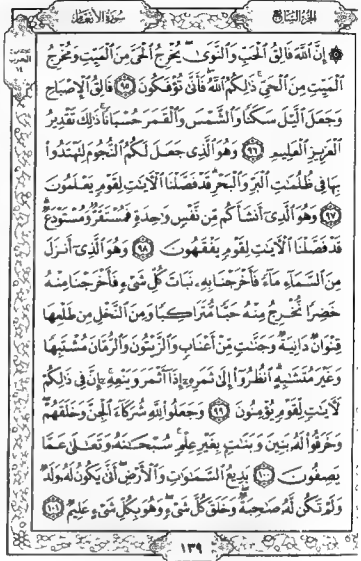 الجزء السابع
سورة الأنعام
۞ إِنَّ ٱللَّهَ فَالِقُ ٱلْحَبِّ وَٱلنَّوَىٰ يُخْرِجُ ٱلْحَىَّ مِنَ ٱلْمَيِّتِ وَمُخْرِجُ
ٱلْمَيِّتِ مِنَ ٱلْحَىِّ ذَٰلِكُمُ ٱللَّهُ فَأَنَّىٰ تُؤْفَكُونَ ٩٥ فَالِقُ ٱلْإِصْبَاحِ
وَجَعَلَ ٱلَّيْلَ سَكَنًا وَٱلشَّمْسَ وَٱلْقَمَرَ حُسْبَانًا ذَٰلِكَ تَقْدِيرُ
ٱلْعَزِيزِ ٱلْعَلِيمِ ٩٦ وَهُوَ ٱلَّذِى جَعَلَ لَكُمُ ٱلنُّجُومَ لِتَهْتَدُوا۟
بِهَا فِى ظُلُمَٰتِ ٱلْبَرِّ وَٱلْبَحْرِ قَدْ فَصَّلْنَا ٱلْءَايَٰتِ لِقَوْمٍ يَعْلَمُونَ
٩٧ وَهُوَ ٱلَّذِىٓ أَنشَأَكُم مِّن نَّفْسٍ وَٰحِدَةٍ فَمُسْتَقَرٌّ وَمُسْتَوْدَعٌ
قَدْ فَصَّلْنَا ٱلْءَايَٰتِ لِقَوْمٍ يَفْقَهُونَ ٩٨ وَهُوَ ٱلَّذِىٓ أَنزَلَ
مِنَ ٱلسَّمَآءِ مَآءً فَأَخْرَجْنَا بِهِۦ نَبَاتَ كُلِّ شَىْءٍ فَأَخْرَجْنَا مِنْهُ
خَضِرًا نُّخْرِجُ مِنْهُ حَبًّا مُّتَرَاكِبًا وَمِنَ ٱلنَّخْلِ مِن طَلْعِهَا
قِنْوَانٌ دَانِيَةٌ وَجَنَّٰتٍ مِّنْ أَعْنَابٍ وَٱلزَّيْتُونَ وَٱلرُّمَّانَ مُشْتَبِهًا
وَغَيْرَ مُتَشَٰبِهٍ ٱنظُرُوٓا۟ إِلَىٰ ثَمَرِهِۦٓ إِذَآ أَثْمَرَ وَيَنْعِهِۦٓ إِنَّ فِى ذَٰلِكُمْ
لَءَايَٰتٍ لِّقَوْمٍ يُؤْمِنُونَ ٩٩ وَجَعَلُوا۟ لِلَّهِ شُرَكَآءَ ٱلْجِنَّ وَخَلَقَهُمْ
وَخَرَقُوا۟ لَهُۥ بَنِينَ وَبَنَٰتٍۭ بِغَيْرِ عِلْمٍ سُبْحَٰنَهُۥ وَتَعَٰلَىٰ عَمَّا
يَصِفُونَ ١٠٠ بَدِيعُ ٱلسَّمَٰوَٰتِ وَٱلْأَرْضِ أَنَّىٰ يَكُونُ لَهُۥ وَلَدٌ
وَلَمْ تَكُن لَّهُۥ صَٰحِبَةٌ وَخَلَقَ كُلَّ شَىْءٍ وَهُوَ بِكُلِّ شَىْءٍ عَلِيمٌ ١٠١
١٣٩